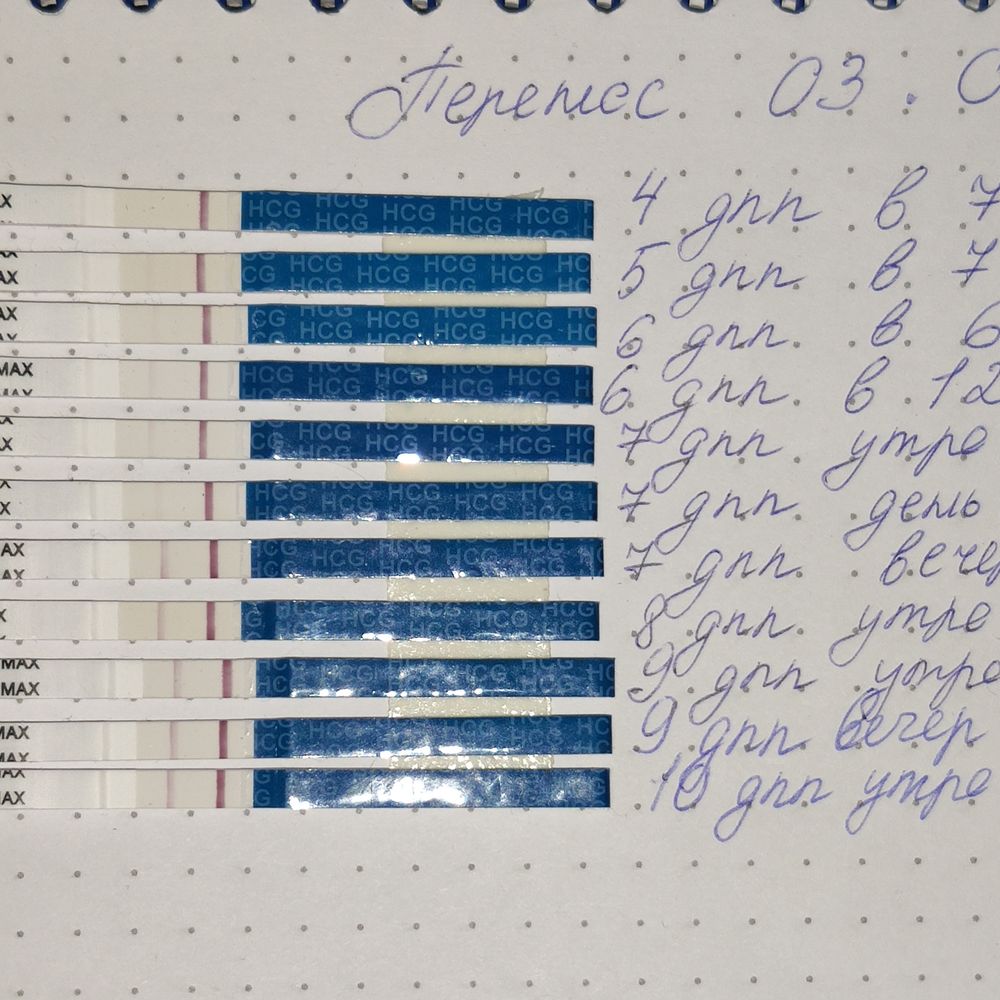 Перенос 03.
AX HCG HCG HCG HCG HCG HCG HCG HCG 4 дпп в 7
AX HCG HCG HCG HCG HCG HCG HCG 5 дпп. в. 7
AX HCG HCG HCG HCG HCG HCG HCG 6 дпп. в. 6
MAX HCG HCG HCG HCG HCG HCG HCG HCG 6 дпп. в 12
MAX
AX HCG HCG HCG HCG HCG HCG 7 дпп утро
X HCG HCG HCG HCG HCG HCG 7 дпп день
AX HCG HCG HCG HCG HCG 7 дпп. вечер
AX
X HCG HCG HCG HCG HCG 8 дпп. утро
MAX HCG HCG 9 дпп утро
MAX
MAX HCG HCG HCG HCG 9 дпп вечер
MAX
MAX HCG 10 дпп утро
MAX